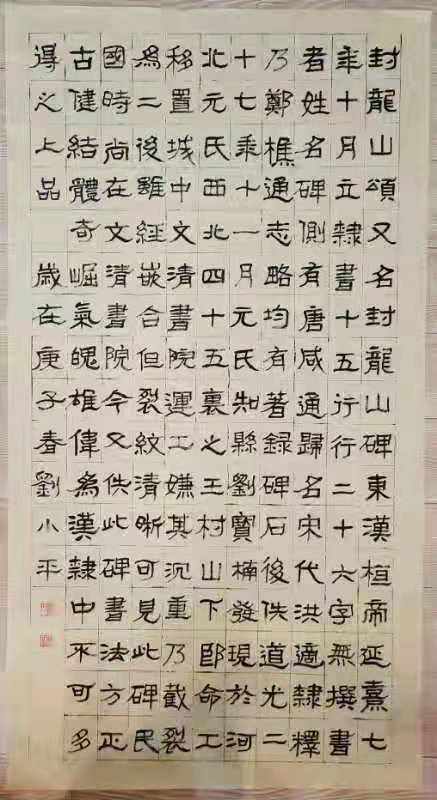 封龍山頌又名封龍山碑東漢桓帝延熹七
年十月立隸書十五行行二十六字無撰書
者姓名碑側有唐咸通歸名宋代洪適隸釋
乃鄭樵通志略均有著錄碑石後佚道光二
十七年十一月元氏知縣劉寶楠發現於河
北元氏西北四十五裏之王村山下即命工
移置城中文清書院運工嫌其沉重乃截裂
為二後雖經嵌合但裂紋清晰可見此碑民
國時尚在文清書院今又佚此碑書法方正
古健結體奇崛氣魄雄偉為漢隸中不可多
得之上品 歲在庚子春劉小平